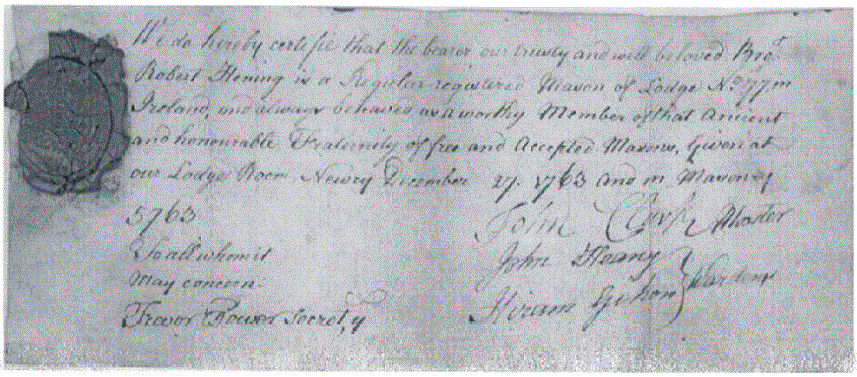 We do hereby certifie that the bearer our trusty and well beloved Bror
Robert Fleming is a Regular registered Mason of Lodge No 77 in
Ireland, and always behaved as a worthy Member of that Ancient
and honourable Fraternity of free and Accepted Masons, Given at
our Lodge Room Newry December 27. 1763 and in Masonry
5763
John Master
To all whom it
John Heany
May concern.
Hiram Wardens
Trevor Power Secretry